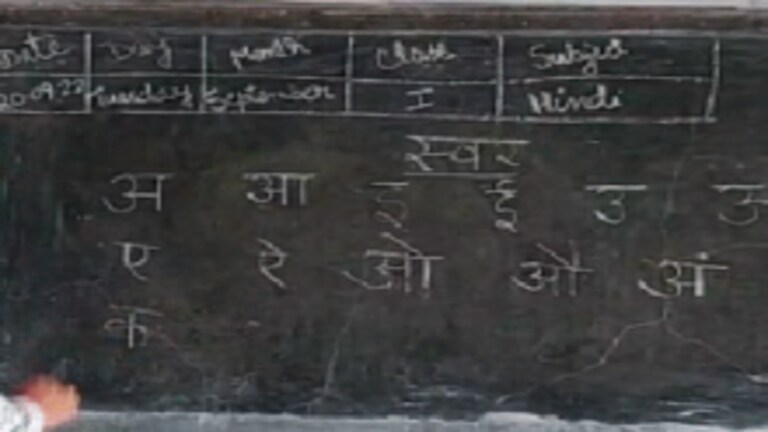 Date Day Month Class Subject
20.09.22 Tuesday September I Hindi
स्वर
अ आ इ ई उ ऊ
ए रे ओ औ अं
क